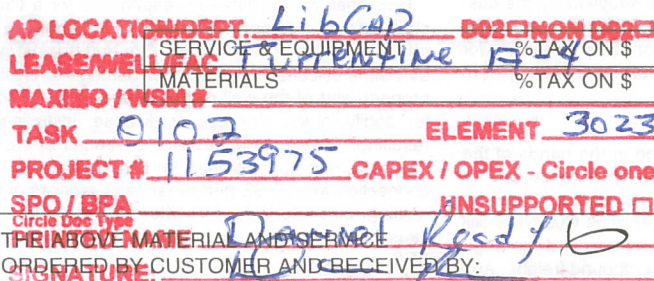 AP LOCATION/DEPT. LibCap D02☐ NON D02☐
SERVICE & EQUIPMENT %TAX ON $
LEASE/WELL/FAC Turrentine A-4
MATERIALS %TAX ON $
MAXIMO / WSM #
TASK 0102 ELEMENT 3023
PROJECT # 1153975 CAPEX / OPEX - Circle one
SPO / BPA UNSUPPORTED ☐
Circle Doc Type
PRINTED NAME Ready
THE ABOVE MATERIAL AND SERVICE
ORDERED BY CUSTOMER AND RECEIVED BY:
SIGNATURE: